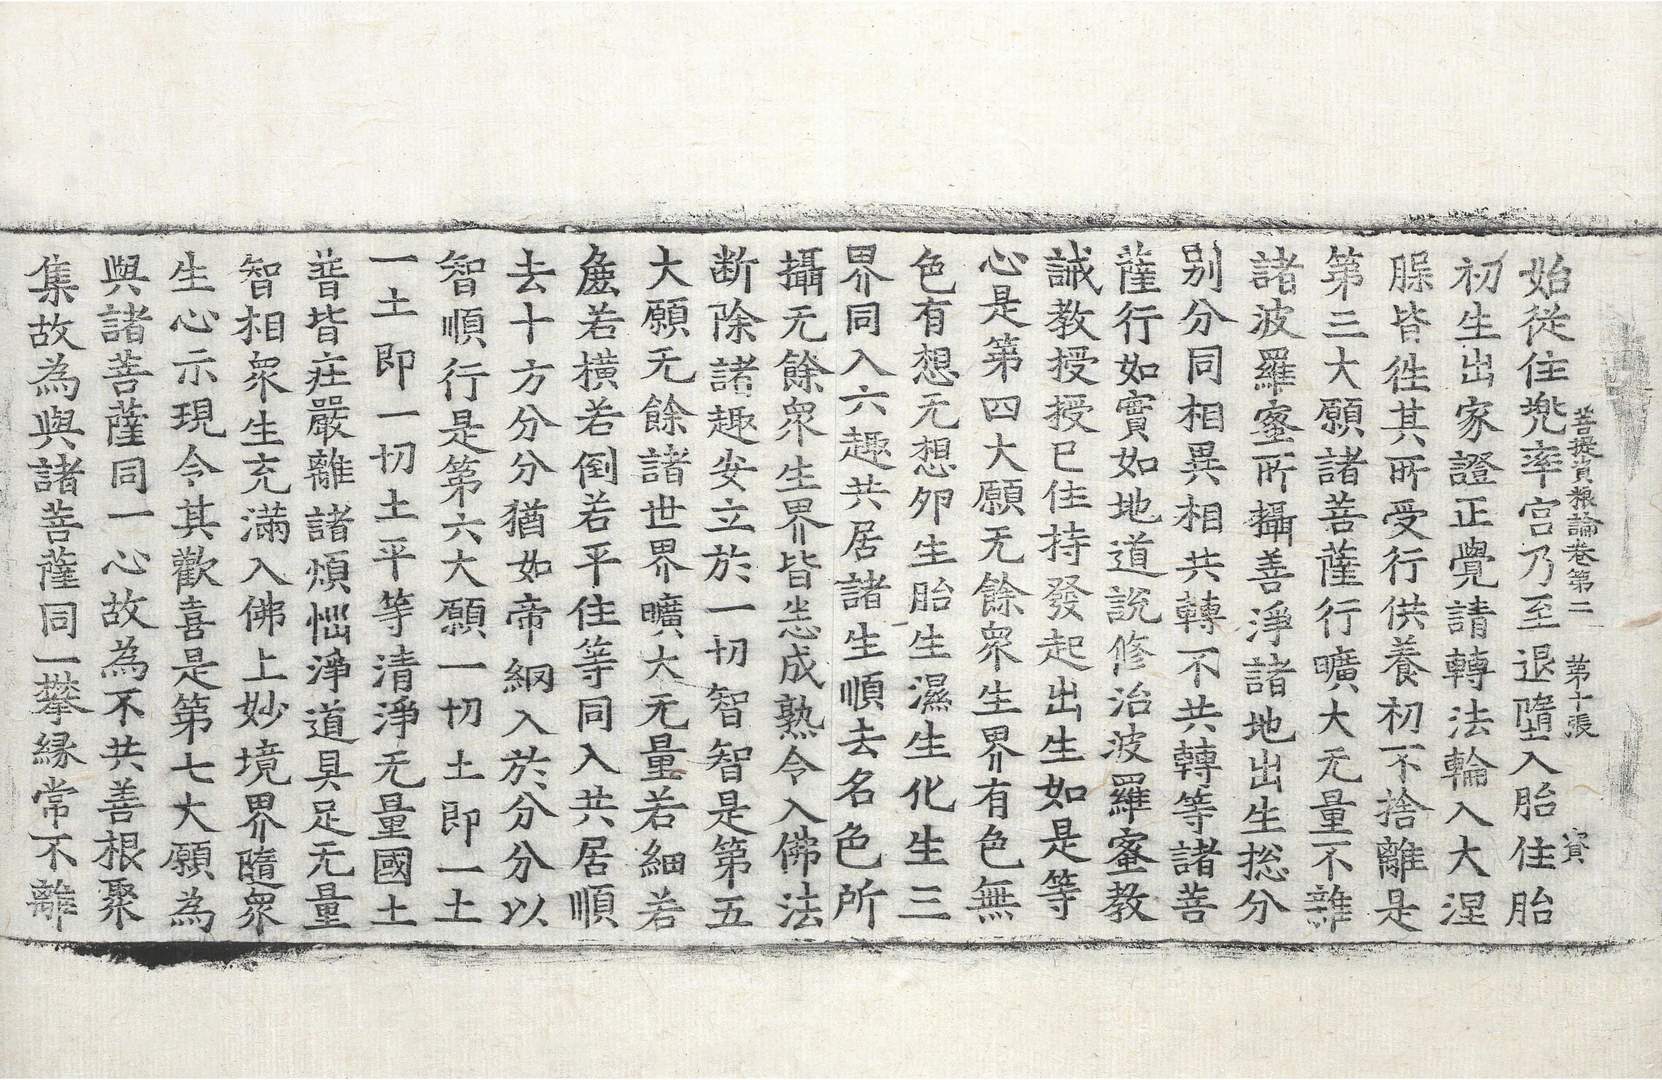 菩提資粮論卷第二　第十張　資
始從住兠率宫乃至退墮入胎住胎
初生出家證正覺請轉法輪入大涅
𦙆皆徃其所受行供養初不捨離是
第三大願諸菩薩行曠大无量不離
諸波羅蜜所攝善淨諸地出生揔分
别分同相異相共轉不共轉等諸菩
薩行如實如地道說修治波羅蜜教
誡教授授已住持發起出生如是等
心是第四大願无餘衆生界有色無
色有想无想夘生胎生濕生化生三
界同入六趣共居諸生順去名色所
攝无餘衆生界皆悉成熟令入佛法
断除諸趣安立於一切智智是第五
大願无餘諸世界曠大无量若細若
麁若横若倒若平住等同入共居順
去十方分分猶如帝網入於分分以
智順行是第六大願一切土即一土
一土即一切土平等清淨无量國土
普皆庄嚴離諸煩惱淨道具足无量
智相衆生充滿入佛上妙境界隨衆
生心示現令其歡喜是第七大願為
與諸菩薩同一心故為不共善根聚
集故為與諸菩薩同一攀縁常不離